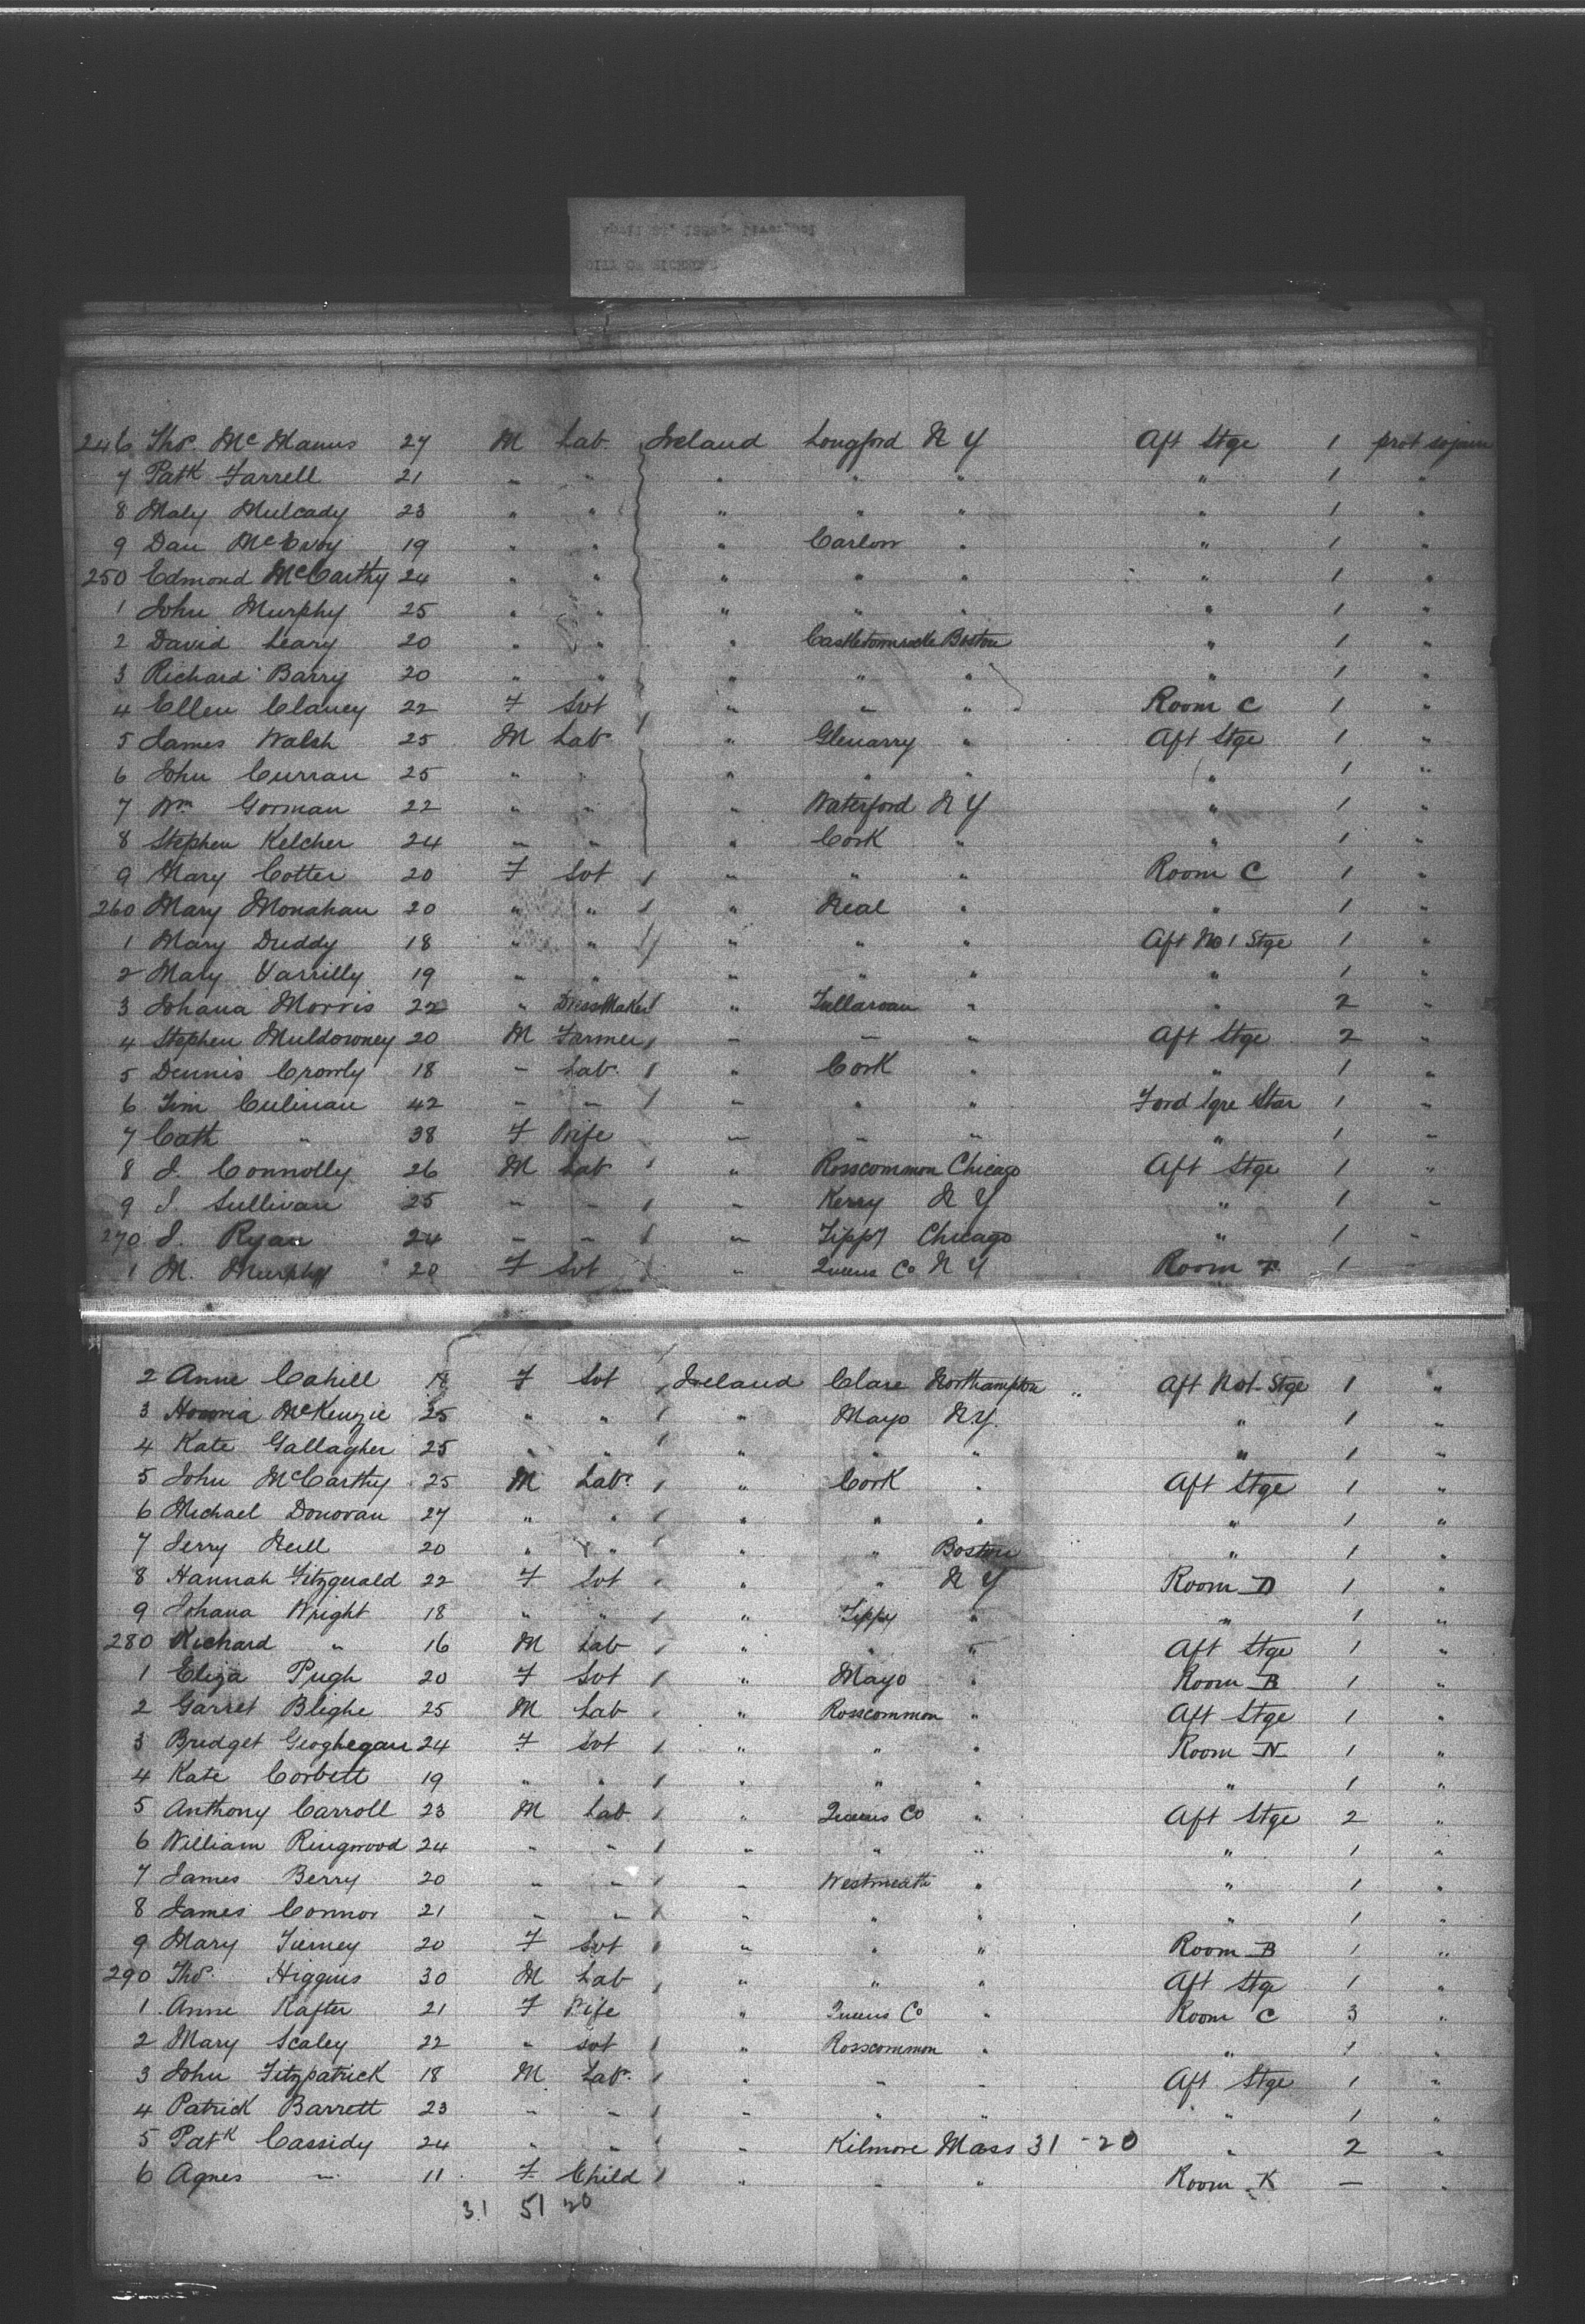 246 Thos. Mc Manus 27 M Lab. Ireland Longford N Y Aft Stge 1 prot sojurn
7 Patk Farrell 21 " " " " " " 1 "
8 Maly Mulcady 23 " " " " " " 1 "
9 Dan McEvoy 19 " " " Carlow " " 1 "
250 Edmond McCarthy 24 " " " " " " 1 "
1 John Murphy 25 " " " " " " 1 "
2 David Leary 20 " " " Boston " 1 "
3 Richard Barry 20 " " " " " " 1 "
4 Ellen Clancy 22 F Svt " " " Room C 1 "
5 James Walsh 25 M Lab. " Glenarry " Aft Stge 1 "
6 John Curran 25 " " " " " " 1 "
7 Wm Gorman 22 " " " Waterford N Y " 1 "
8 Stephen Kelcher 24 " " " Cork " " 1 "
9 Mary Cotter 20 F Svt " " " Room C 1 "
260 Mary Monahan 20 " " " Neal " " 1 "
1 Mary Duddy 18 " " " " " Aft No 1 Stge 1 "
2 Mary Varrilly 19 " " " " " " 1 "
3 Johana Morris 22 " DressMaker " Tullaroan " " 2 "
4 Stephen Muldowney 20 M Farmer " " " Aft Stge 2 "
5 Dennis Crowly 18 " Lab. " Cork " " 1 "
6 Tim Culinan 42 " " " " " Ford Star 1 "
7 Cath " 38 F Wife " " " " 1 "
8 J. Connolly 26 M Lab " Rosscommon Chicago Aft Stge 1 "
9 J. Sullivan 25 " " " Kerry N Y " 1 "
270 J. Ryan 24 " " " Tippy Chicago " 1 "
1 M. Murphy 20 F Svt " Queens Co N Y Room F 1 "
2 Anne Cahill F Svt Ireland Clare Northampton " Aft No1 Stge 1 "
3 Honoria McKenzie 25 " " " Mayo N.Y. " 1 "
4 Kate Gallagher 25 " " " " " " 1 "
5 John McCarthy 25 M Lab. " Cork " Aft Stge 1 "
6 Michael Donovan 27 " " " " " " 1 "
7 Jerry Neill 20 " " " " Boston " 1 "
8 Hannah Fitzgerald 22 F Svt " " N Y Room D 1 "
9 Johana Wright 18 " " " Tippy " " 1 "
280 Richard " 16 M Lab " " " Aft Stge 1 "
1 Eliza Pugh 20 F Svt " Mayo " Room B 1 "
2 Garret Blighe 25 M Lab " Rosscommon " Aft Stge 1 "
3 Bridget Geoghegan 24 F Svt " " " Room N 1 "
4 Kate Corbett 19 " " " " " " 1 "
5 Anthony Carroll 23 M Lab " Queens Co " Aft Stge 2 "
6 William Ringwood 24 " " " " " " 1 "
7 James Berry 20 " " " Westmeath " " 1 "
8 James Connor 21 " " " " " " 1 "
9 Mary Tierney 20 F Svt " " " Room B 1 "
290 Thos. Higgins 30 M Lab " " " Aft Stge 1 "
1 Anne Rafter 21 F Wife " Queens Co " Room C 3 "
2 Mary Scaley 22 " svt " Rosscommon " " 1 "
3 John Fitzpatrick 18 M Lab. " " " Aft Stge 1 "
4 Patrick Barrett 23 " " " " " " 1 "
5 Patk Cassidy 24 " " " Kilmore Mass 31 - 20 " 2 "
6 Agnes " 11 F Child " " " Room K — "
31 51 20